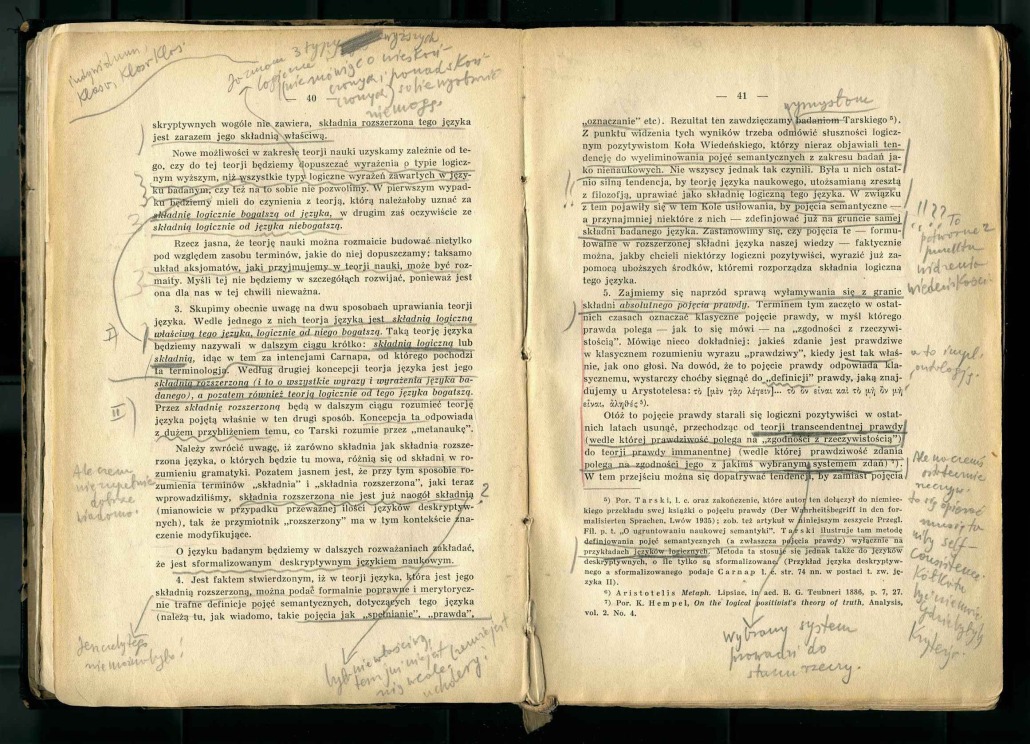 Indywiduum,
Klasa, Klas Klas
Ja znam 3 typy wyższych
— 40 —
skryptywnych wogóle nie zawiera, składnia rozszerzona tego języka
jest zarazem jego składnią właściwą.
Nowe możliwości w zakresie teorji nauki uzyskamy zależnie od te-
go, czy do tej teorji będziemy dopuszczać wyrażenia o typie logicz-
nym wyższym, niż wszystkie typy logiczne wyrażeń zawartych w języ-
ku badanym, czy też na to sobie nie pozwolimy. W pierwszym wypad-
ku będziemy mieli do czynienia z teorją, którą należałoby uznać za
składnię logicznie bogatszą od języka, w drugim zaś oczywiście ze
składnią logicznie od języka niebogatszą.
Rzecz jasna, że teorję nauki można rozmaicie budować nietylko
pod względem zasobu terminów, jakie do niej dopuszczamy; taksamo
układ aksjomatów, jaki przyjmujemy w teorji nauki, może być roz-
maity. Myśli tej nie będziemy w szczegółach rozwijać, ponieważ jest
ona dla nas w tej chwili nieważna.
3. Skupimy obecnie uwagę na dwu sposobach uprawiania teorji
języka. Wedle jednego z nich teorja języka jest jego składnią logiczną
właściwą tego języka, logicznie od niego bogatszą. Taką teorję języka
będziemy nazywali w dalszym ciągu krótko: składnią logiczną lub
składnią, idąc w tem za intencjami Carnapa, od którego pochodzi
ta terminologja. Według drugiej koncepcji teorja języka jest jego
składnią rozszerzoną (i to o wszystkie wyrazy i wyrażenia języka ba-
danego), a pozatem również teorją logicznie od tego języka bogatszą.
Przez składnię rozszerzoną będą w dalszym ciągu rozumieć teorję
języka pojętą właśnie w ten drugi sposób. Koncepcja ta odpowiada
z dużem przybliżeniem temu, co Tarski rozumie przez „metanaukę".
Należy zwrócić uwagę, iż zarówno składnia jak składnia rozsze-
rzona języka, o których będzie tu mowa, różnią się od składni w ro-
zumieniu gramatyki. Pozatem jasnem jest, że przy tym sposobie ro-
zumienia terminów „składnia" i „składnia rozszerzona", jaki teraz
wprowadziliśmy, składnia rozszerzona nie jest już naogół składnią
(mianowicie w przypadku przeważnej ilości języków deskryptyw-
nych), tak że przymiotnik „rozszerzony" ma w tym kontekście zna-
czenie modyfikujące.
O języku badanym będziemy w dalszych rozważaniach zakładać,
że jest sformalizowanym deskryptywnym językiem naukowym.
4. Jest faktem stwierdzonym, iż w teorji języka, która jest jego
składnią rozszerzoną, można podać formalnie poprawne i merytorycz-
nie trafne definicje pojęć semantycznych, dotyczących tego języka
(należą tu, jak wiadomo, takie pojęcia jak „spełnianie", „prawda",
I)
II)
?
— 41 —
wymysłom
„oznaczanie" etc). Rezultat ten zawdzięczamy badaniom Tarskiego ⁵).
Z punktu widzenia tych wyników trzeba odmówić słuszności logicz-
nym pozytywistom Koła Wiedeńskiego, którzy nieraz objawiali ten-
dencję do wyeliminowania pojęć semantycznych z zakresu badań ja-
ko nienaukowych. Nie wszyscy jednak tak czynili. Była u nich ostat-
nio silną tendencja, by teorję języka naukowego, utożsamianą zresztą
z filozofją, uprawiać jako składnię logiczną tego języka. W związku
z tem pojawiły się w tem Kole usiłowania, by pojęcia semantyczne —
a przynajmniej niektóre z nich — zdefinjować już na gruncie samej
składni badanego języka. Zastanowimy się, czy pojęcia te — formu-
łowalne w rozszerzonej składni języka naszej wiedzy — faktycznie
można, jakby chcieli niektórzy logiczni pozytywiści, wyrazić już za-
pomocą uboższych środków, któremi rozporządza składnia logiczna
tego języka.
5. Zajmiejmy się naprzód sprawą wyłamywania się z granic
składni absolutnego pojęcia prawdy. Terminem tym zaczęto w ostat-
nich czasach oznaczać klasyczne pojęcie prawdy, w myśl którego
prawda polega — jak to się mówi — na „zgodności z rzeczywi-
stością". Mówiąc nieco dokładniej: jakieś zdanie jest prawdziwe
w klasycznem rozumieniu wyrazu „prawdziwy", kiedy jest tak właś-
nie, jak ono głosi. Na dowód, że to pojęcie prawdy odpowiada kla-
sycznemu, wystarczy choćby sięgnąć do „definicji" prawdy, jaką znaj-
dujemy u Arystotelesa: τὸ [μὲν γὰρ λέγειν]... τὸ ὂν εἶναι καὶ τὸ μὴ ὂν μὴ
εἶναι, ἀληθές ⁶).
Otóż to pojęcie prawdy starali się logiczni pozytywiści w ostat-
nich latach usunąć, przechodząc od teorji transcendentnej prawdy
(wedle której prawdziwość polega na „zgodności z rzeczywistością")
do teorji prawdy immanentnej (wedle której prawdziwość zdania
polega na zgodności jego z jakimś wybranym systemem zdań) ⁷).
W tem przejściu można się dopatrywać tendencji, by zamiast pojęcia
⁵) Por. Tarski, l. c. oraz zakończenie, które autor ten dołączył do niemiec-
kiego przekładu swej książki o pojęciu prawdy (Der Wahrheitsbegriff in den for-
malisierten Sprachen, Lwów 1935); zob. też artykuł w niniejszym zeszycie Przegl.
Fil. p. t. „O ugruntowaniu naukowej semantyki". Tarski ilustruje tam metodę
definjowania pojęć semantycznych (a zwłaszcza pojęcia prawdy) wyłącznie na
przykładach języków logicznych. Metoda ta stosuje się jednak także do języków
deskryptywnych, o ile tylko są sformalizowane. (Przykład języka deskryptywne-
go a sformalizowanego podaje Carnap l. c. str. 74 nn. w postaci t. zw. ję-
zyka II).
⁶) Aristotelis Metaph. Lipsiae, in aed. B. G. Teubneri 1886, p. 7, 27.
⁷) Por. K. Hempel, On the logical positivist's theory of truth, Analysis,
vol. 2. No. 4.
!! ?? To
potworne z
punktu
widzenia
wiedeńskości
wybrany system
prowadzi do
stanu rzeczy.